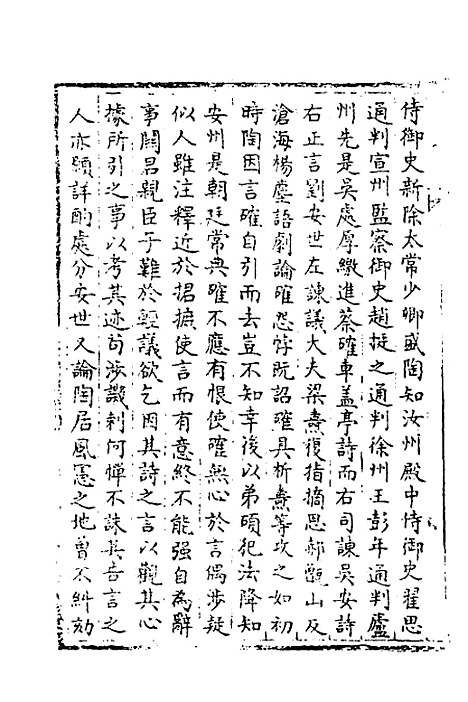 侍御史新除太常少卿盛陶知汝州殿中侍御史翟思
通判宣州監察御史趙挺之通判徐州王彭年通判廬
州先是吳處厚繳進蔡確車盖亭詩而右司諫吳安詩
右正言劉安世左諫議大夫梁燾復指摘思郝甑山反
滄海楊塵語劇論確怨悖旣詔確具析燾等攻之如初
時陶因言確自引而去豈不知幸後以弟碩犯法降知
安州是朝廷常典確不應有恨使確無心於言偶涉疑
似人雖注釋近於捃摭使言而有意終不能强自為辭
事闗君親臣子難於輕議欲乞因其詩之言以觀其心
據所引之事以考其迹苟涉譏刺何憚不誅其告言之
人亦須詳酌處分安世又論陶居風憲之地曾不糾劾